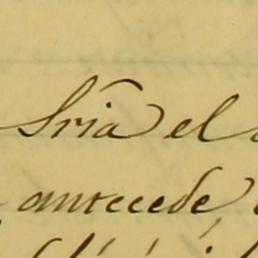 Sria el
antecede,